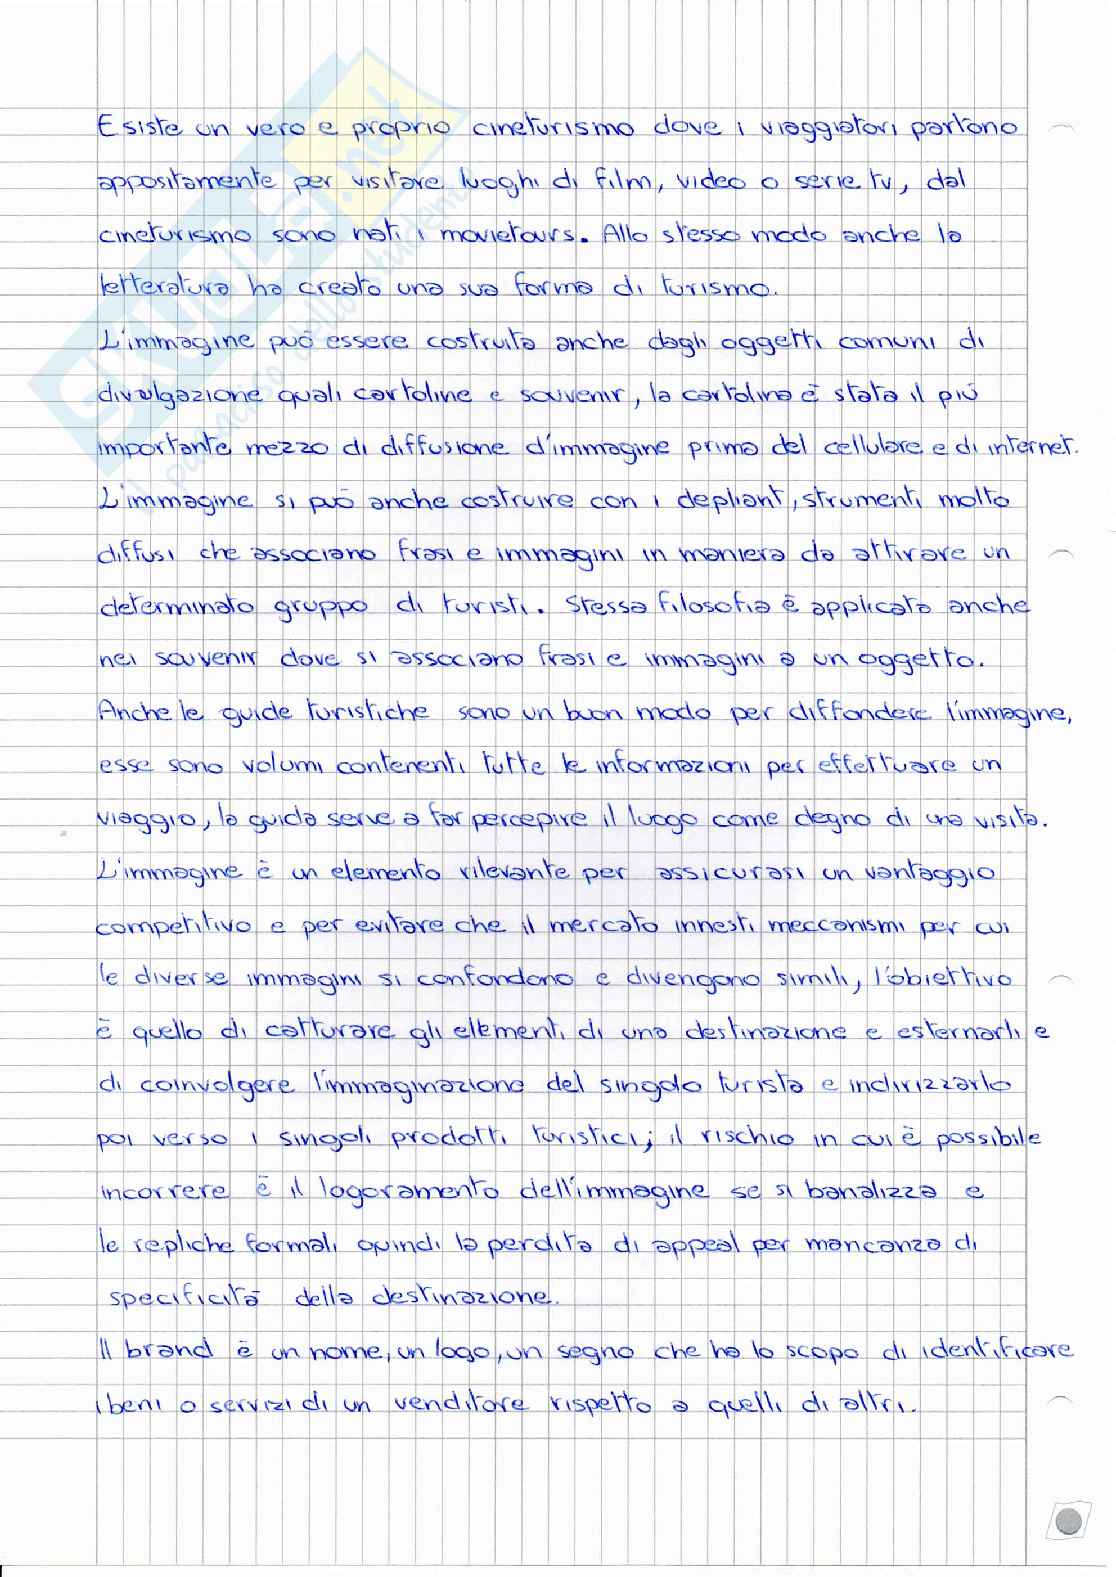 Esiste un vero e proprio cineturismo dove i viaggiatori partono
appositamente per visitare luoghi di film, video o serie tv, dal
cineturismo sono nati i movietours. Allo stesso modo anche la
letteratura ha creato una sua forma di turismo.
L'immagine può essere costruita anche dagli oggetti comuni di
divulgazione quali cartoline e souvenir, la cartolina è stata il più
importante mezzo di diffusione d'immagine prima del cellulare e di internet.
L'immagine si può anche costruire con i depliant, strumenti molto
diffusi che associano frasi e immagini in maniera da attirare un
determinato gruppo di turisti. Stessa filosofia è applicata anche
nei souvenir dove si associano frasi e immagini a un oggetto.
Anche le guide turistiche sono un buon modo per diffondere l'immagine,
esse sono volumi contenenti tutte le informazioni per effettuare un
viaggio, la guida serve a far percepire il luogo come degno di una visita.
L'immagine è un elemento rilevante per assicurasi un vantaggio
competitivo e per evitare che il mercato innesti meccanismi per cui
le diverse immagini si confondono e divengono simili, l'obiettivo
è quello di catturare gli elementi di una destinazione e esternarli e
di coinvolgere l'immaginazione del singolo turista e indirizzarlo
poi verso i singoli prodotti turistici; il rischio in cui è possibile
incorrere è il logoramento dell'immagine se si banalizza e
le repliche formali quindi la perdita di appeal per mancanza di
specificità della destinazione.
Il brand è un nome, un logo, un segno che ha lo scopo di identificare
i beni o servizi di un venditore rispetto a quelli di altri.
SKUOLA.net
il paradiso dello studente